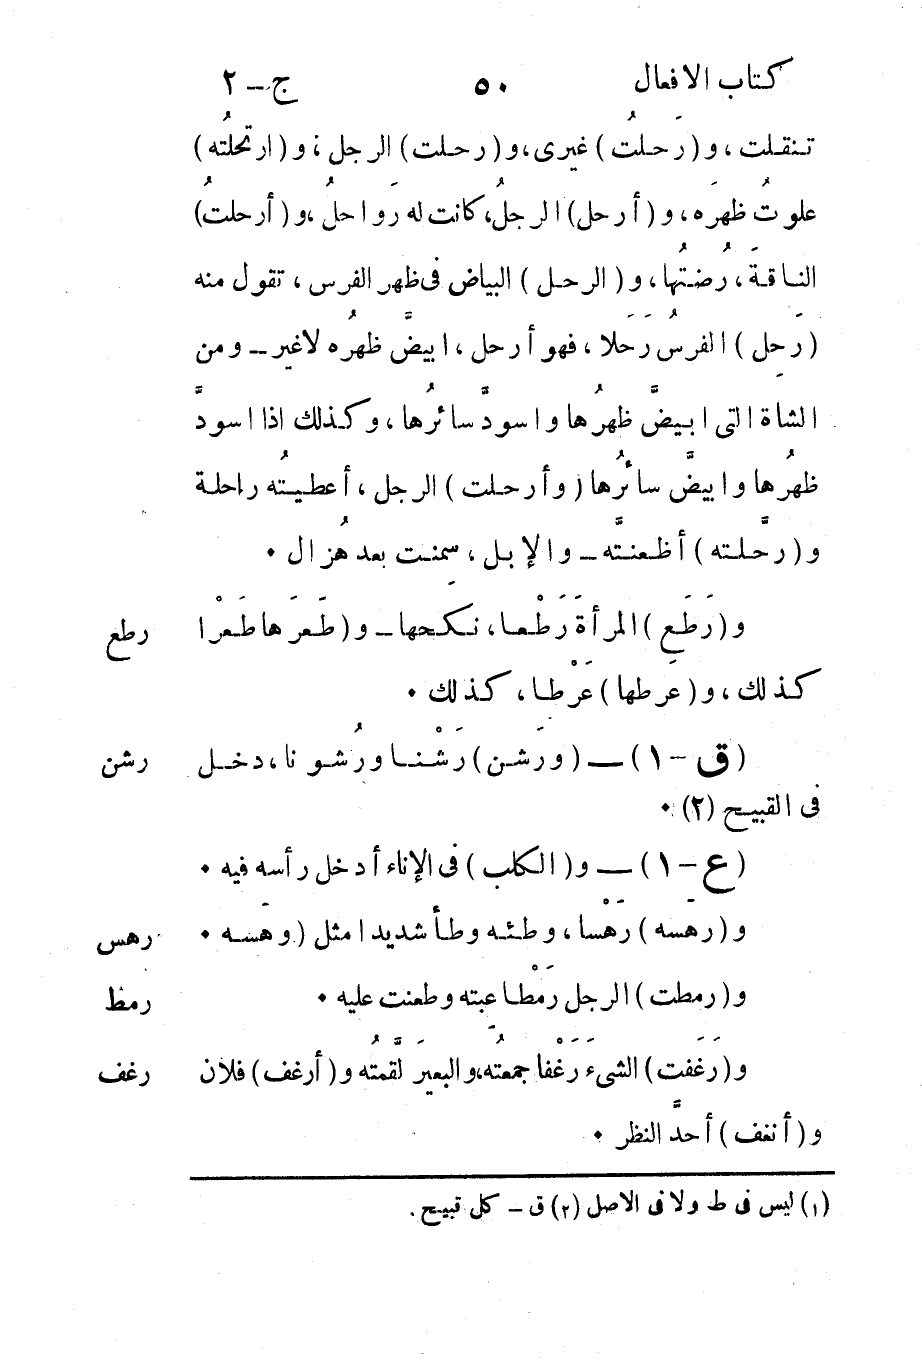 كتاب الافعال ٥٠ ج – ٢
تنقلت ، و ( رَحلتُ ) غيرى ، و ( رحلت ) الرجل ؛ و ( ارتحلتُه )
علوتُ ظهرَه ، و ( أرحل ) الرجلُ ، كانت له رَواحلُ ، و ( أرحلتُ )
الناقةَ ، رُضتُها ، و ( الرحل ) البياض فى ظهر الفرس ، تقول منه
( رَحِل ) الفرسُ رَحَلا ، فهو أرحل ، ابيضَّ ظهرُه لاغير – ومن
الشاة التى ابيضَّ ظهرُها واسودَّ سائرُها ، وكذلك اذا اسودَّ
ظهرُها وابيضَّ سائرُها ( وأرحلت ) الرجل ، أعطيتُه راحلة
و ( رحَّلته ) أظعنتُه – والإبل ، سمنت بعد هزال •
و ( رَطَع ) المرأةَ رَطْعا ، نكحها – و ( طَعَرَها طَعْرا رطع
كذلك ، و ( عَرَطها ) عَرْطا ، كذلك •
( ق – ١ ) – ( ورَشن ) رَشْنا ورُشونا ، دخل رشن
فى القبيح (٢) •
( ع – ١ ) – و ( الكلب ) فى الإناء أدخل رأسه فيه •
و ( رهسه ) رَهْسا ، وطئه وطأ شديدا مثل ( وهَسه • رهس
و ( رمطت ) الرجل رَمْطا عبته وطعنت عليه • رمط
و ( رَغَفت ) الشىء رَغْفا جمعتُه ، والبعيرَ لقمَّتُه و ( أرغف ) فلان رغف
و ( أنغف ) أحدَّ النظر •
(١) ليس فى ط ولا فى الاصل (٢) ق – كل قبيح .